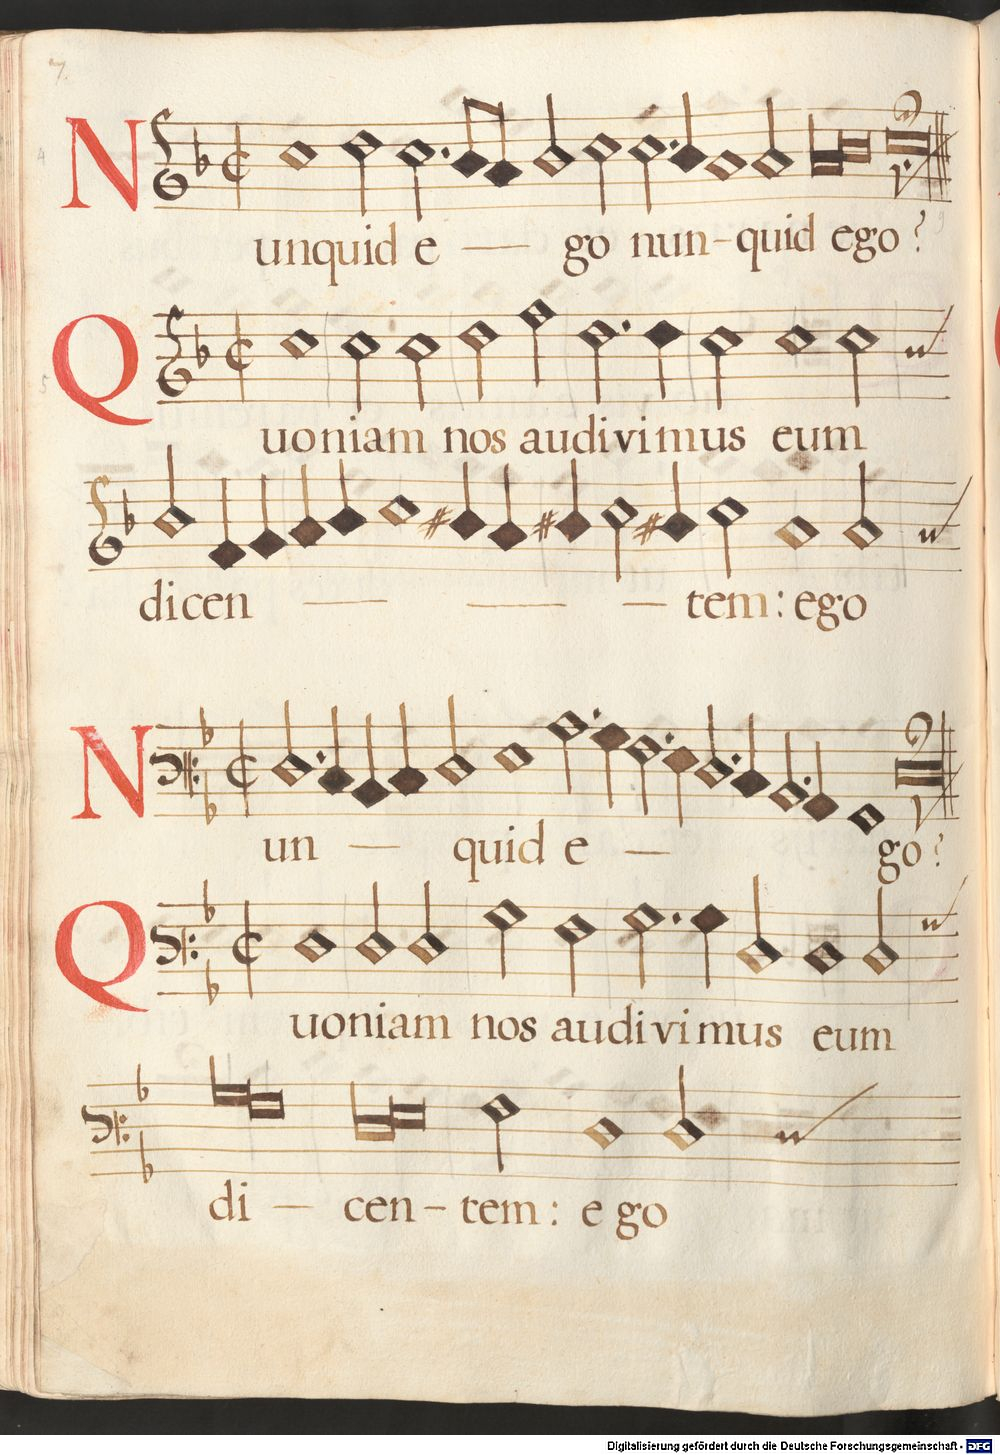 7.
4
Nunquid e — go nun-quid ego?
9
5
Quoniam nos audivimus eum
dicen — — — tem: ego
Nun — quid e — go?
Quoniam nos audivimus eum
di — cen-tem: ego
Digitalisierung gefördert durch die Deutsche Forschungsgemeinschaft - DFG